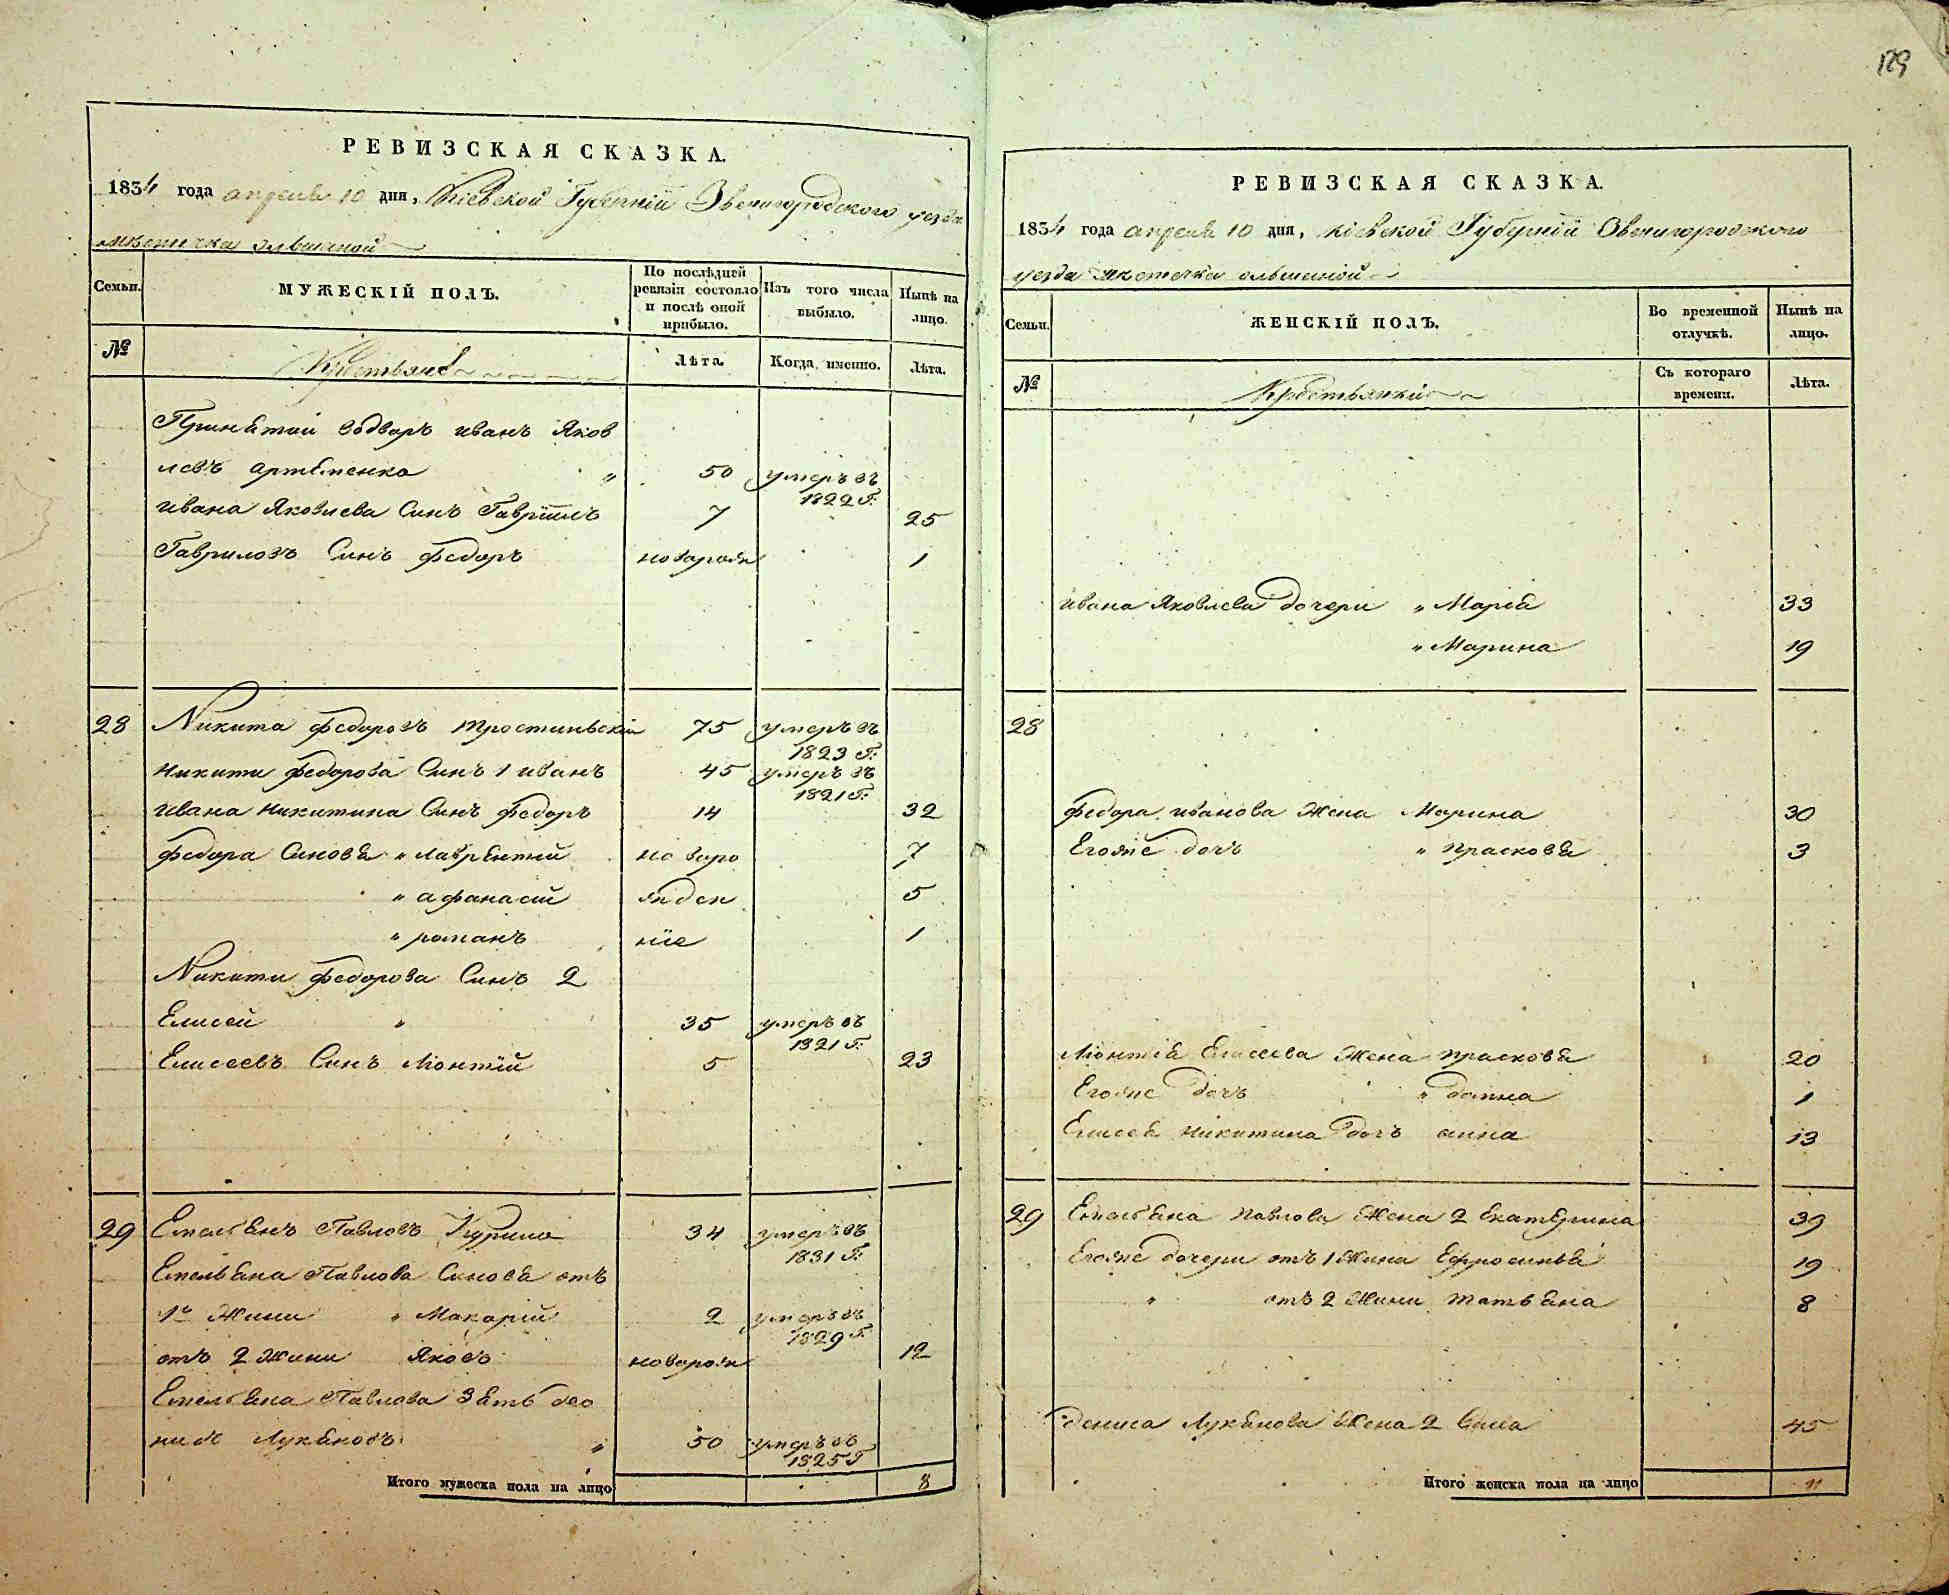 129
РЕВИЗСКАЯ СКАЗКА.
1834 года апреля 10 дня, Кіевской Губерніи Звенигородского уезда
мѣстечка Ольшаной
Семьи.
МУЖЕСКІЙ ПОЛЪ.
По послѣдней ревизіи состояло и послѣ оной прибыло.
Изъ того числа выбыло.
Нынѣ на лицо.
№
Крестьяне
Лѣта.
Когда именно.
Лѣта.
Принятой водворъ иванъ Яков
левъ артеменко " 50 умеръ въ 1822 Г:
ивана Яковлева Синъ Гавріилъ 7 25
Гавриловъ Синъ федоръ новорож 1
28 Никита федоровъ тростиньскій 75 умеръ въ 1823 Г:
никити федорова Синъ 1 иванъ 45 умеръ въ 1821 Г:
ивана никитина Синъ федоръ 14 32
федора Синовя " лаврентій новоро 7
" афанасій жден 5
" романъ ніе 1
Никити федорова Синъ 2
Елисей " 35 умеръ въ 1821 Г:
Елисеевъ Синъ Ліонтій 5 23
29 Емельянъ Павловъ Курило 34 умеръ въ 1831 Г:
Емельяна Павлова Синовя отъ
1й Жини " Макарій 2 умеръ въ 1829 Г
отъ 2 Жини Яковъ новорож 12
Емельяна Павлова Зять део
нисъ Лукяновъ " 50 умеръ въ 1825 Г
Итого мужеска пола на лицо 8
РЕВИЗСКАЯ СКАЗКА.
1834 года апреля 10 дня, кіевской Губерніи Звенигородского
уезда мѣстечка ольшаной
Семьи.
ЖЕНСКІЙ ПОЛЪ.
Во временной отлучкѣ.
Нынѣ на лицо.
№
Крестьянки
Съ котораго времени.
Лѣта.
ивана Яковлева дочери " Марія 33
" Марина 19
28
федора иванова Жена Марина 30
Егожє дочъ " прасковя 3
Ліонтія Елисеева Жена прасковя 20
Егоже дочъ " домна 1
Елисея никитина дочъ анна 13
29 Емельяна павлова Жена 2 Екатерина 39
Егоже дочери отъ 1 Жини Ефросинья 19
" отъ 2 Жини татьяна 8
дениса Лукянова Жена 2 45
Итого женска пола на лицо 11